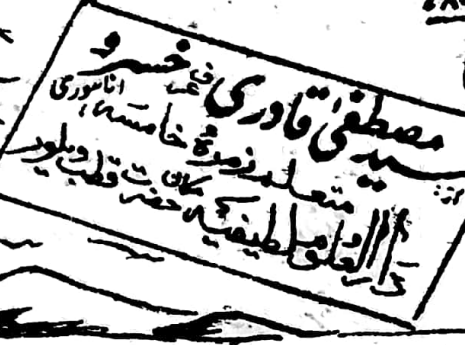 از: سید مصطفیٰ قادری عرف خسرو
متعلم زمرۂ خامسہ،
دارالعلوم لطیفیہ مکان حضرت قطب ویلور